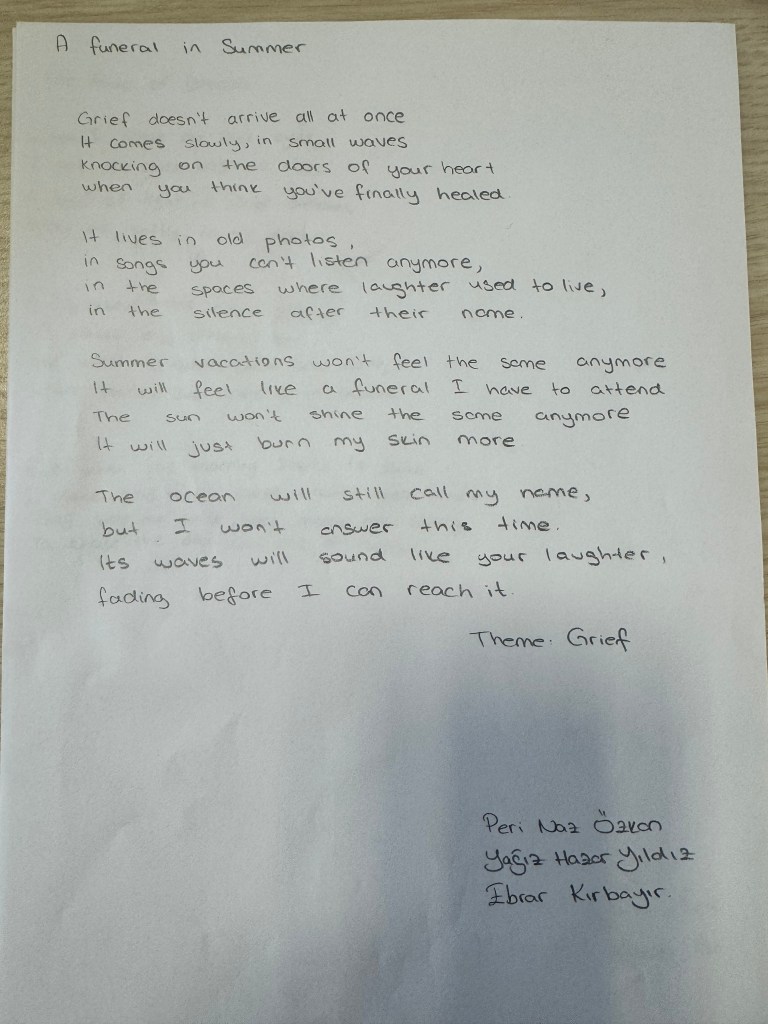 A funeral in Summer
Grief doesn't arrive all at once
It comes slowly, in small waves
knocking on the doors of your heart
when you think you've finally healed.
It lives in old photos,
in songs you can't listen anymore,
in the spaces where laughter used to live,
in the silence after their name.
Summer vacations won't feel the same anymore
It will feel like a funeral I have to attend
The sun won't shine the same anymore
It will just burn my skin more
The ocean will still call my name,
but I won't answer this time.
Its waves will sound like your laughter,
fading before I can reach it.
Theme: Grief
Peri Naz Özkan
Yağız Hazar Yıldız
Ebrar Kırbayır.